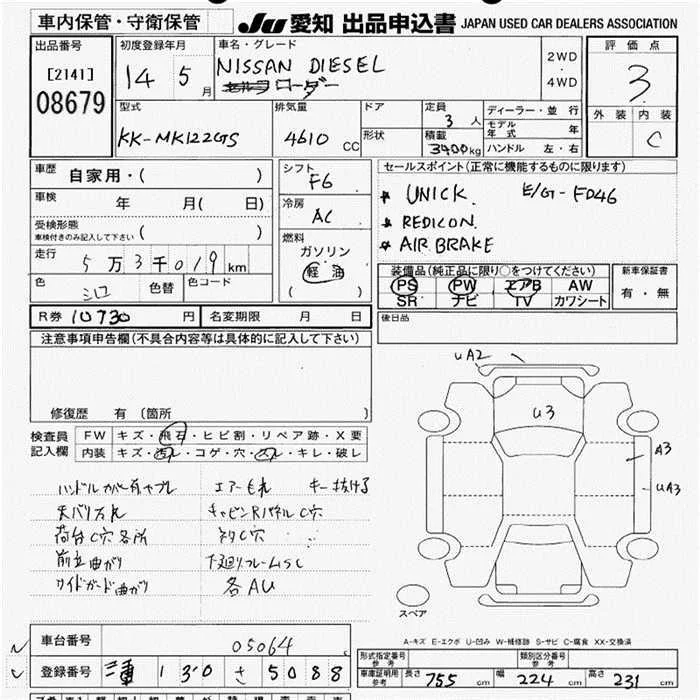 車内保管・守衛保管
JU 愛知 出品申込書 JAPAN USED CAR DEALERS ASSOCIATION
出品番号
[2141]
08679
初度登録年月
14 5 月
車名・グレード
NISSAN DIESEL
ローダー
2WD
・
4WD
評価点
3
外装 内装
C
型式
KK-MK122GS
排気量
4610 CC
ドア
形状
定員
3 人
積載
3400kg
ディーラー・並行
モデル年式 年
ハンドル 左・右
車歴 自家用・( )
車検 年 月( 日)
受検形態
車検付きのみ記入して下さい ( )
走行 5万3千019km
色 シロ 色替 色コード
シフト
F6
冷房
AC
燃料
ガソリン
軽油
( )
セールスポイント(正常に機能するものに限ります)
★ UNICK. E/G-FD46
★ REDICON.
★ AIR BRAKE
装備品(純正品に限り○をつけてください)
PS PW エアB AW
SR ナビ TV カワシート
新車保証書
有・無
R券 10730 円 名変期限 月 日
後日品
注意事項申告欄(不具合内容等は具体的に記入して下さい)
修復歴 有 (箇所 )
検査員
記入欄
FW キズ・飛石・ヒビ割・リペア跡・X要
内装 キズ・汚レ・コゲ・穴・スレ・キレ・破レ
ハンドルカバー有 エアーもれ キー抜ける
キャビンRパネルC穴
荷台C穴各所
前立曲がり 下廻りフレームSC
サイドガード曲がり 各AU
UA2
U3
A3
UA3
スペア
A-キズ E-エクボ U-凹み W-補修跡 S-サビ C-腐食 XX-交換済
車台番号 05064
登録番号 三重 130 さ 5088
形式指定番号
参考
類別区分番号
参考
車庫証明用
参考
長さ 755 cm 幅 224 cm 高さ 231 cm